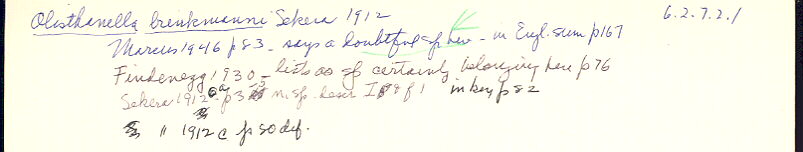 Olisthanella brinkmanni Sekera 1912 6.2.7.2.1
Marcus 1946 p 83 - says a doubtful sp here - in Engl. sum p 167
Findenegg 1930 - lists as sp certainly belonging here p 76
Sekera 1912 a p 3 n. sp. descr I f 1 in key p 82
" 1912 c p 50 def.